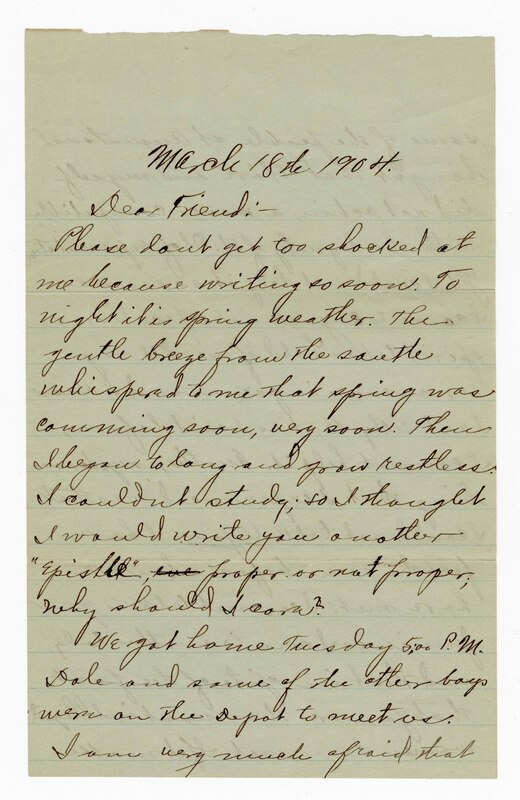 March 18th 1904.
Dear Friend:-
Please dont get too shocked at
me because writing so soon. To
night it is spring weather. The
gentle breeze from the south
whisperd to me that spring was
comming soon, very soon. Then
I began to long and grow restless.
I couldn't study, so I thought
I would write you another
"Epistle", proper or not proper;
why should I care?
We got home Tuesday 5:00 P.M.
Dale and some of the other boys
were on the Depot to meet us.
I am very much afraid that